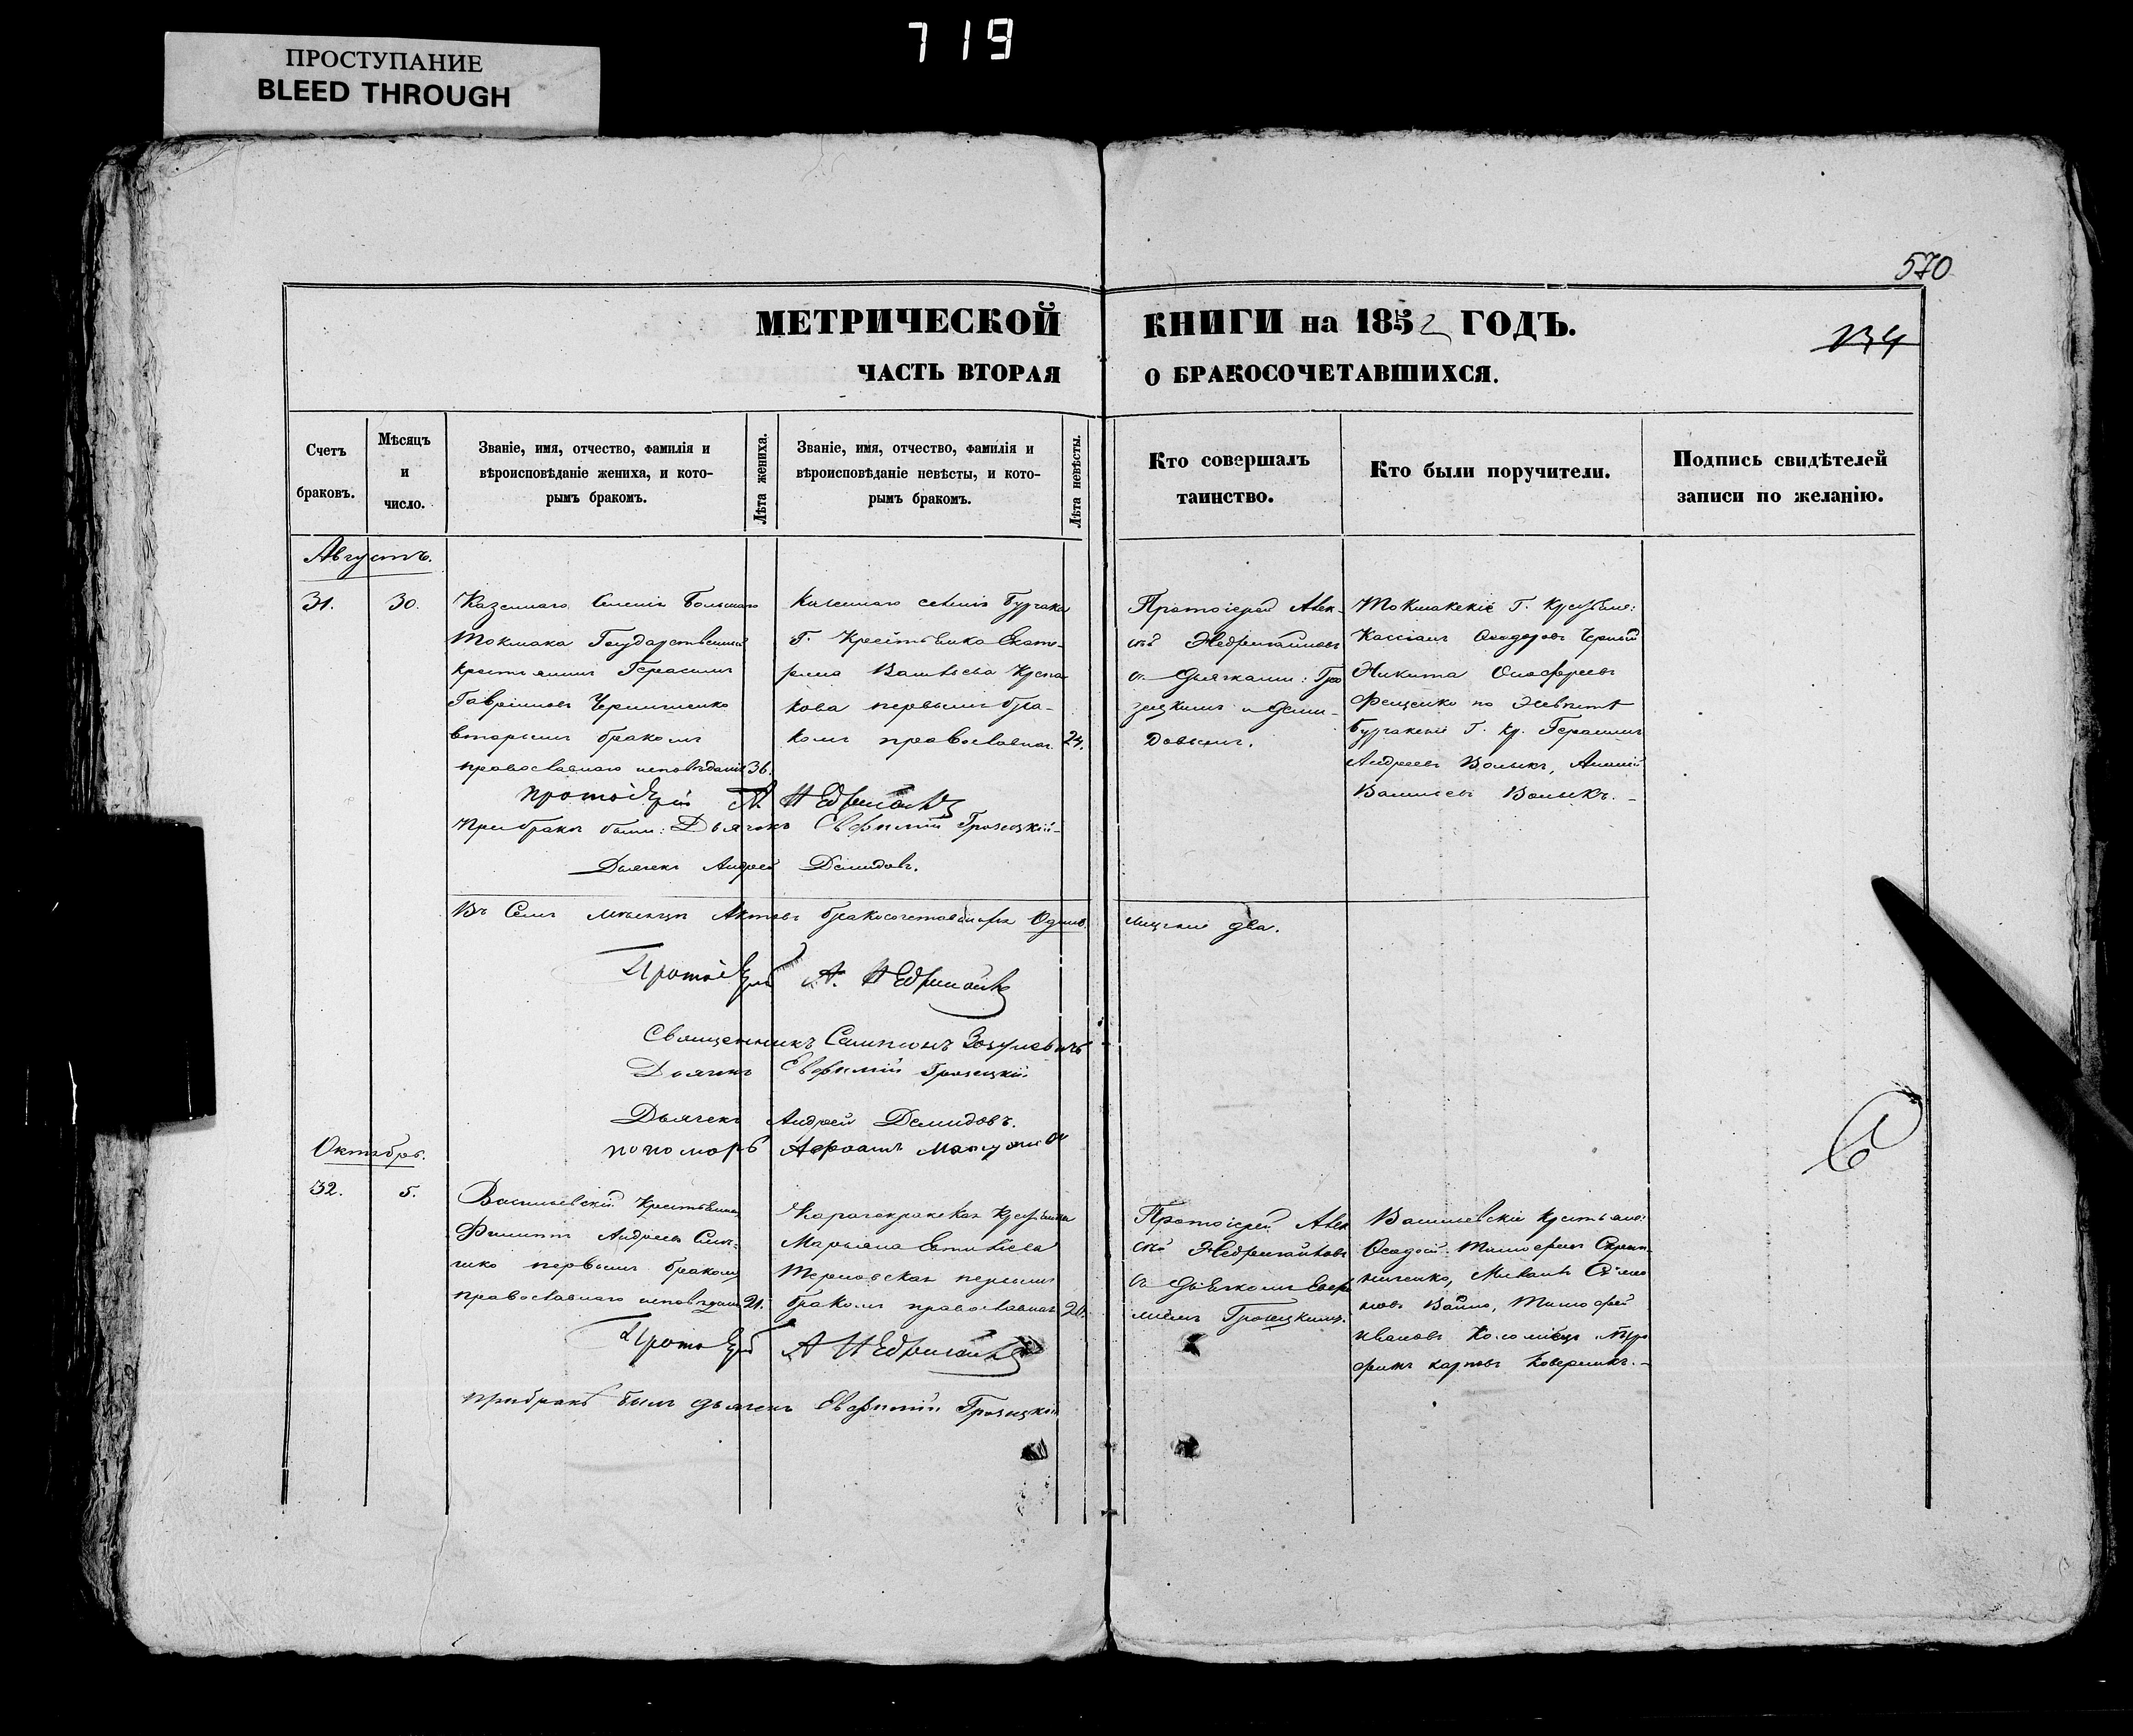 719
ПРОСТУПАНИЕ
BLEED THROUGH
570
МЕТРИЧЕСКОЙ КНИГИ на 1852 ГОДЪ.
134
ЧАСТЬ ВТОРАЯ О БРАКОСОЧЕТАВШИХСЯ.
Счетъ
браковъ.
Мѣсяцъ
и
число.
Званіе, имя, отчество, фамилія и
вѣроисповѣданіе жениха, и кото-
рымъ бракомъ.
Лѣта жениха.
Званіе, имя, отчество, фамилія и
вѣроисповѣданіе невѣсты, и кото-
рымъ бракомъ.
Лѣта невѣсты.
Кто совершалъ
таинство.
Кто были поручители.
Подпись свидѣтелей
записи по желанію.
Августъ.
31.
30.
Казеннаго Селенія Большаго
Токмака Государственный
крестьянинъ Герасимъ
Гавріиловъ
вторымъ бракомъ
православнаго исповѣданія
36.
казеннаго селенія Бурчака
Г. Крестьянка Екате-
рина
первымъ бра-
комъ православнаго
24.
Протоіерей Алек-
сѣй Недригайловъ
съ Дьячками: Гро
зецкимъ и Деми-
довымъ.
Токмакскіе Г. Крестьяне:
Кассіанъ Ѳеодоровъ Черный
Никита
по невѣстѣ
Бурчакскіе Г. Кр. Герасимъ
Андреевъ Волыкъ,
Васильевъ Волыкъ.
Протоіерей А. Недригайловъ
При бракѣ были: Дьячекъ Евфимій Грозецкій
Дьячекъ Андрей Демидовъ.
Въ Семъ мѣсяцѣ Актовъ бракосочетавшихся Одинъ.
лицъ два.
Протоіерей А. Недригайловъ
Священникъ Сампсонъ Зозулевичъ
Дьячекъ Евфимій Грозецкій
Дьячекъ Андрей Демидовъ.
пономарь
Октябрь.
32.
5.
Васильевскій Крестьянинъ
Филиппъ Андреевъ
первымъ бракомъ
православнаго исповѣданія
21.
Карачекракская Крестьянка
Марьяна
Терновская первымъ
бракомъ православнаго
20.
Протоіерей Алек
сѣй Недригайловъ
съ Дьячкомъ Евфи
міемъ Грозецкимъ.
Васильевскіе Крестьяне:
Ѳеодосій Тимофеевъ
Тимофей
Ивановъ
Карповъ
Протоіерей А Недригайловъ
При бракѣ былъ дьячекъ Евфимій Грозецкій